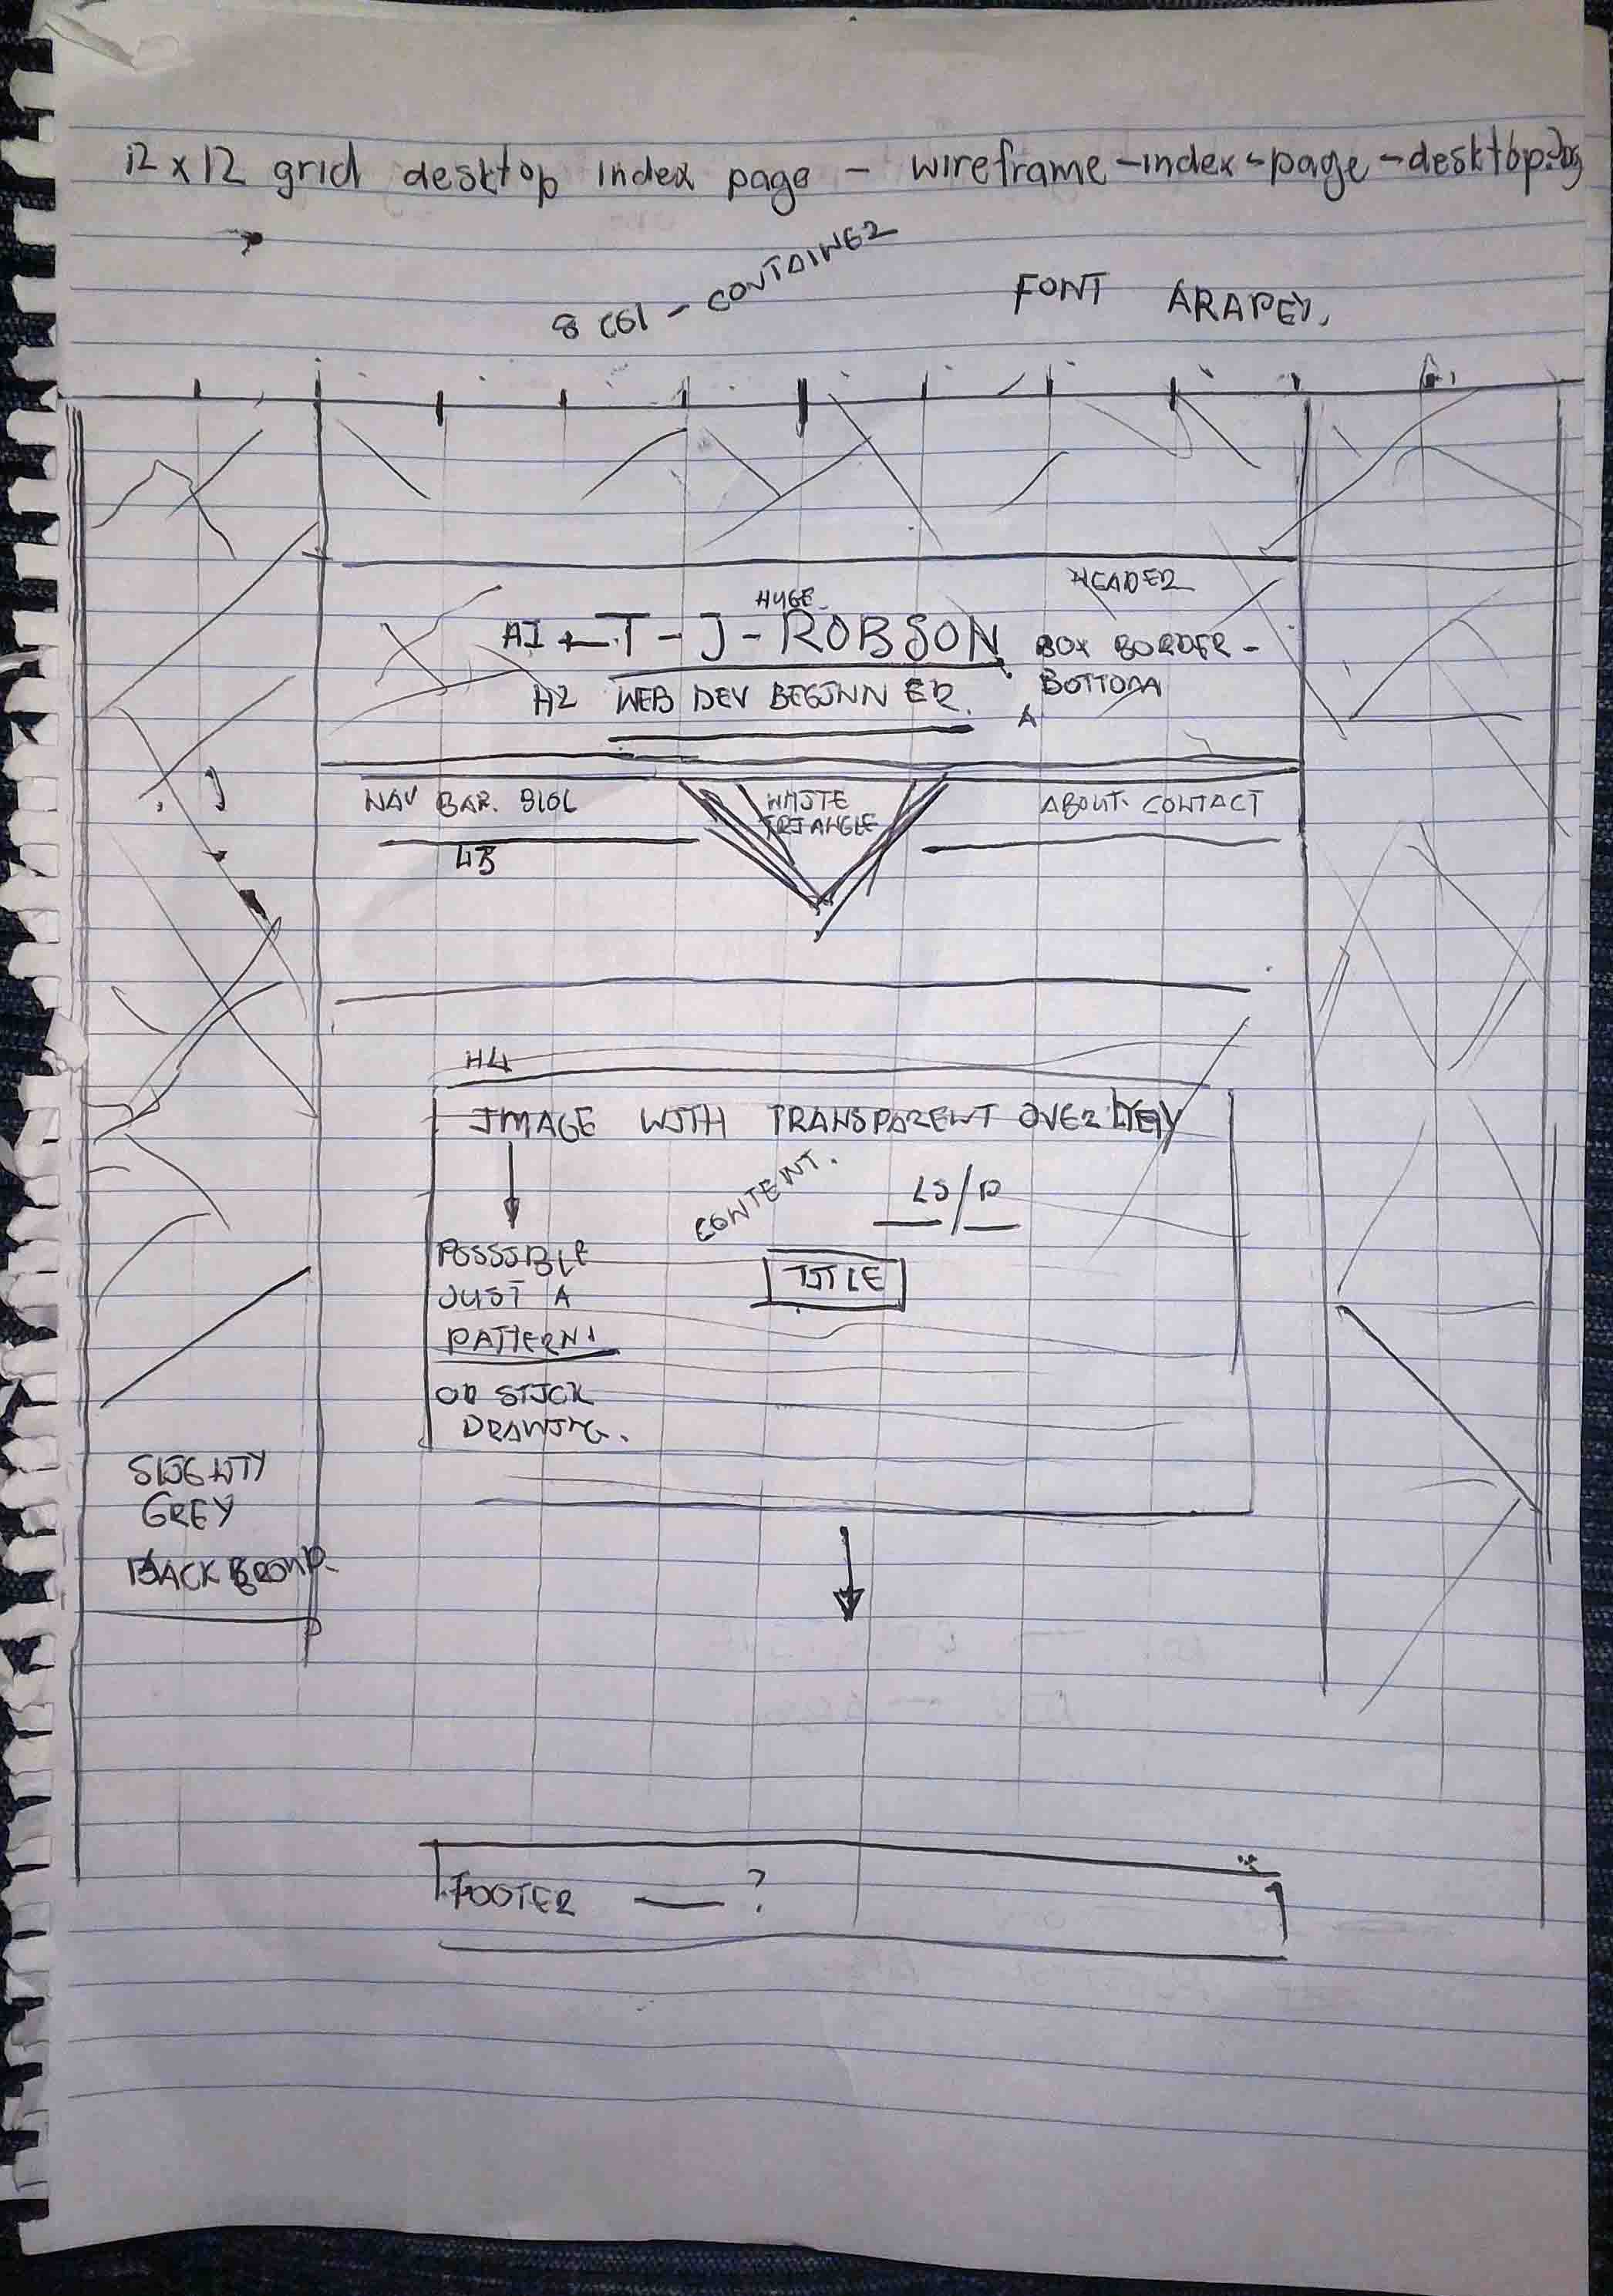 12 x 12 grid desktop index page - wireframe-index-page-desktop.jpg
8 COl - CONTAINER
FONT ARAPEY.
HEADER
HUGE
T-J-ROBSON
BOX BORDER-
BOTTOM
H2 WEB DEV BEGINNER.
NAV BAR.
WHITE
TRIANGLE
ABOUT. CONTACT
H4
IMAGE WITH TRANSPARENT OVERLAY
CONTENT.
POSSIBLE
JUST A
PATTERN
TITLE
OR STICK
DRAWING.
SLIGHTY
GREY
BACKGROUND
FOOTER — ?